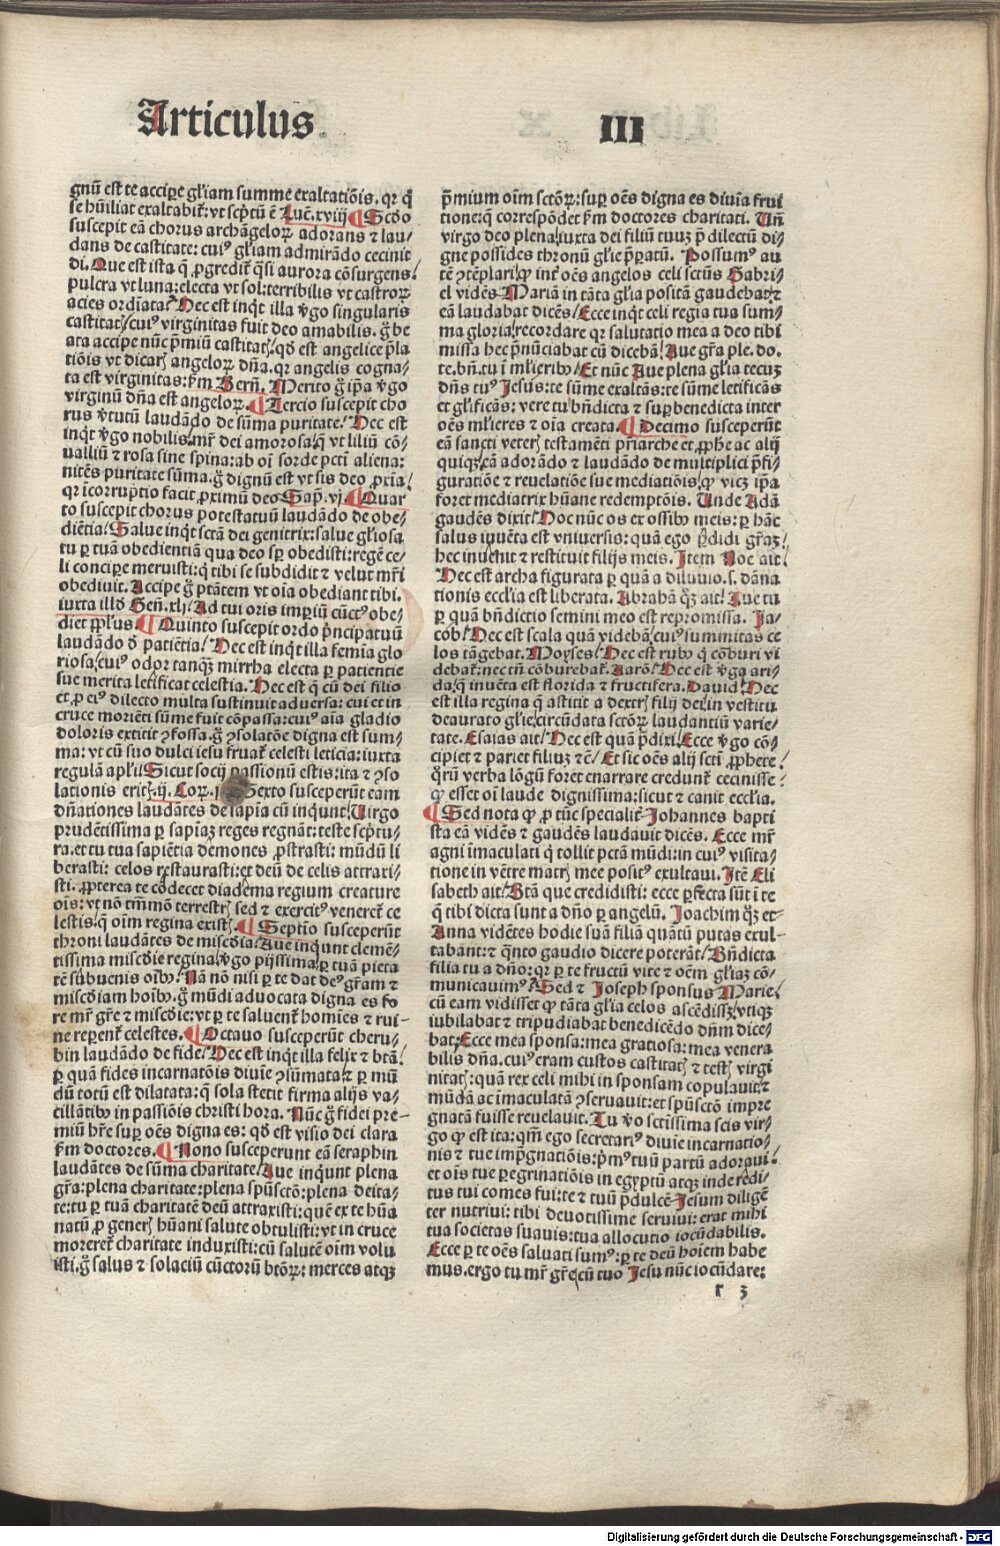 Articulus III
gnū est te accipe gl'iam summe exaltatiōis. qr q̄
se hūiliat exaltabit̄: vt scp̄tū ē Luc̄. xviij ¶ Scd̄o
suscepit eā chorus archāgeloꝝ adorans ⁊ lau/
dans de castitate: cuiꝰ gl'iam admirādo cecinit
di. Que est ista q̄ ꝓgredit̄ q̄si aurora cōsurgens/
pulcra vt luna: electa vt sol: terribilis vt castroꝝ
acies ordīata/ Hec est inqt illa v̄go singularis
castitatꝭ/ cuiꝰ virginitas fuit deo amabilis. g̊ be
ata accipe nūc p̄miū castitatꝭ/ qd̄ est angelice p̄la
tiōis vt dicarꝭ angeloꝝ dn̄a. qr angelis cogna/
ta est virginitas: s̄m Bern̄. Merito g̊ ip̄a v̄go
virginū dn̄a est angeloꝝ. ¶ Tercio suscepit cho
rus v̄tutū laudādo de sūma puritate/ Hec est
inqt v̄go nobilis/ mr̄ dei amorosa/ q̄ vt liliū cō/
ualliū ⁊ rosa sine spina: ab oī sorde pctī aliena:
nitēs puritate sūma. g̊ dignū est vt sis deo ꝓxīa/
qr icorruptio facit ꝓximū deo Sap̄. vj ¶ Quar
to suscepit chorus potestatuū laudādo de obe/
diētia/ Salue inqt sctā dei genitrix: salue gl'iosa
tu ꝑ tuā obedientiam qua deo sp̄ obedisti: regē ce/
li concipe meruisti: q̄ tibi se subdidit ⁊ velut mr̄i
obediuit. Accipe g̊ ptātem vt oīa obediant tibi.
iuxta illd̄ Gen̄. xlj/ Ad tui oris imp̄iū cūctꝰ obe/
diet ppl'us. ¶ Quinto suscepit ordo p̄ncipatuū
laudādo d̄ patiētia/ Hec est inqt illa femīa glo
riosa/ cuiꝰ odor tanqꝫ mirrha electa ꝑ patientie
sue merita letificat celestia. Hec est q̄ cū dei filio
et ꝓ eiꝰ dilecto multa sustinuit aduersa: cui et in
cruce moriēti sūme fuit cōpassa: cuiꝰ aīa gladio
doloris extitit ꝯfossa. g̊ ꝯsolatōe digna est sum/
ma: vt cū suo dulci iesu fruat̄ celesti leticia: iuxta
regulā apl'ii/ Sicut socij passionū estis: ita ⁊ ꝯso
lationis eritꝭ. ij. Coꝝ. Sexto susceperūt eam
dn̄ationes laudātes de sapīa cū inqunt/ Virgo
prudētissima ꝑ sapīaꝫ reges regnāt: teste scp̄tu/
ra. et tu tua sapiētia demones ꝓstrasti: mūdū li
berasti: celos restaurasti: et deū de celis attraxi/
sti. ꝓpterea te cōdecet diadema regium creature
oīs: vt nō tm̄mō terrestrꝭ sed ⁊ exercitꝰ veneret̄ ce
lestis. q̄ oīm regina existꝭ. ¶ Septio susceperūt
throni laudātes de miscd'ia/ Aue inqunt clemē/
tissima miscd'ie regina/ v̄go pijssima/ ꝑ tuā pieta
tē sūbuenis oībꝰ. Nā nō nisi ꝑ te dat deꝰ gr̄am ⁊
miscd'iam hoībꝰ. g̊ mūdi aduocata digna es fo
re mr̄ gr̄e ⁊ miscd'ie: vt ꝑ te saluent̄ homīes ⁊ rui-
ne reperent̄ celestes. ¶ Octauo susceperūt cheru/
bin laudādo de fide/ Hec est inqt illa felix ⁊ btā/
ꝑ quā fides incarnatōis diuīe ꝯsūmata/ ⁊ ꝑ mū
dū totū est dilatata: q̄ sola stetit firma alijs va/
cillātibꝰ in passiōis christi hora. Nūc g̊ fidei pre-
miū hr̄e suꝑ oēs digna es: qd̄ est visio dei clara
s̄m doctores. ¶ Nono susceperunt eā seraphin
laudātes de sūma charitate/ Aue inqunt plena
gr̄a: plena charitate: plena spūsctō: plena deita/
te: tu ꝑ tuā charitatē deū attraxisti: quē ex te hūa
natū ꝓ generꝭ hūani salute obtulisti: vt in cruce
moreret̄ charitate induxisti: cū salutē oīm volu
isti. g̊ salus ⁊ solaciū cūctorū btōꝝ: merces atqꝫ
p̄mium oīm sctōꝝ: suꝑ oēs digna es diuīa frui
tione: q̄ correspōdet s̄m doctores charitati. Un̄
virgo deo plena/ iuxta dei filiū tuuꝫ p̄dilectū di/
gne possides thronū gl'ie p̄paratū. Possumꝰ au
tē ꝯtēplari/ ꝙ int̄ oēs angelos celi sctūs Gabri/
el vidēs Mariā in tāta gl'ia positā gaudebat/ ⁊
eā laudabat dicēs/ Ecce inqt celi regia tua sum/
ma gloria/ recordare qr salutatio mea a deo tibi
missa hec p̄nūciabat cū dicebā/ Aue gr̄a ple. do.
te. bn̄. tu ī ml'ieribꝰ/ Et nūc Aue plena gl'ia tecuꝫ
dn̄s tuꝰ Jesus: te sūme exaltās: te sūme letificās
et gl'ificās: vere tu bn̄dicta ⁊ suꝑ benedicta inter
oēs ml'ieres ⁊ oīa creata. ¶ Decimo susceperūt
eā sancti veterꝭ testamēti pr̄iarche et ꝓphe ac alij
quiqꝫ/ eā adorādo ⁊ laudādo de multiplici p̄fi/
guratiōe ⁊ reuelatiōe sue mediatiōis/ ꝙ vicꝫ ip̄a
foret mediatrix hūane redemptōis. Unde Adā
gaudēs dixit/ Hoc nūc os ex ossibꝰ meis: ꝑ hāc
salus iuuēta est vniuersis: quā ego p̄didi gr̄aꝫ/
hec inuēnit ⁊ restituit filijs meis. Item Noe ait/
Hec est archa figurata ꝑ quā a diluuio. s. dāna
tionis eccl'ia est liberata. Abrahā q̄ꝫ ait/ Aue tu
ꝑ quā bn̄dictio semini meo est repromissa. Ja/
cob/ Hec est scala quā videbā/ cuiꝰ summitas ce
los tāgebat. Moyses/ Hec est rubꝰ q̄ cōburi vi
debat̄: nec tn̄ cōburebat̄. Aarō/ Hec est v̄ga ari/
da/ q̄ inuēta est florida ⁊ fructifera. Dauid/ Hec
est illa regina q̄ astitit a dextrꝭ filij dei/ in vestitu
deaurato gl'ie/ circūdata sctōꝝ laudantiū varie/
tate. Esaias ait/ Hec est quā p̄dixi/ Ecce v̄go cō/
cipiet ⁊ pariet filiuꝫ ⁊c̄/ Et sic oēs alij sctī ꝓphete/
q̄rū verba lōgū foret enarrare credunt̄ cecinisse/
ꝙ esset oī laude dignissima: sicut ⁊ canit eccl'ia.
¶ Sed nota ꝙ ꝓ tūc specialit̄ Johannes bapti
sta eā vidēs ⁊ gaudēs laudauit dicēs. Ecce mr̄
agni īmaculati q̄ tollit pctā mūdi: in cuiꝰ visita/
tione in vētre matrꝭ mee positꝰ exultaui. Itē Eli
sabeth ait/ Btā que credidisti: ecce ꝑfecta sūt ī te
q̄ tibi dicta sunt a dn̄o ꝑ angelū. Joachim q̄ꝫ et-
Anna vidētes hodie suā filiā quātū putas exul-
tabant: ⁊ q̄nto gaudio dicere poterāt/ Bn̄dicta
filia tu a dn̄o: qr ꝑ te fructū vite ⁊ oēm gl'iaꝫ cō/
municauimꝰ. Sed ⁊ Joseph sponsus Marie/
cū eam vidisset ꝙ tāta gl'ia celos ascēdissꝫ/ vtiqꝫ
iubilabat ⁊ tripudiabat benedicēdo dn̄m dice/
bat/ Ecce mea sponsa: mea gratiosa: mea venera
bilis dn̄a. cuiꝰ eram custos castitatꝭ ⁊ testꝭ virgī
nitatꝭ: quā rex celi mihi in sponsam copulauit/ ⁊
mūdā ac īmaculatā ꝯseruauit: et spūsctō impre
gnatā fuisse reuelauit. Tu v̄o sctissima scis vir/
go ꝙ est ita: qm̄ ego secretariꝰ diuīe incarnatio/
nis ⁊ tue imp̄gnatiōis: p̄mꝰ tuū partū adoraui/
et oīs tue peregrinatiōis in egyptū atqꝫ inde redi/
tus tui comes fui: te ⁊ tuū p̄dulcē Jesum diligē
ter nutriui: tibi deuotissime seruiui: erat mihi
tua societas suauis: tua allocutio iocūdabilis.
Ecce ꝑ te oēs saluati sumꝰ: ꝑ te deū hoīem habe
mus. ergo tu mr̄ gr̄e/ cū tuo Jesu nūc iocūdare:
r 3
Digitalisierung gefördert durch die Deutsche Forschungsgemeinschaft - DFG